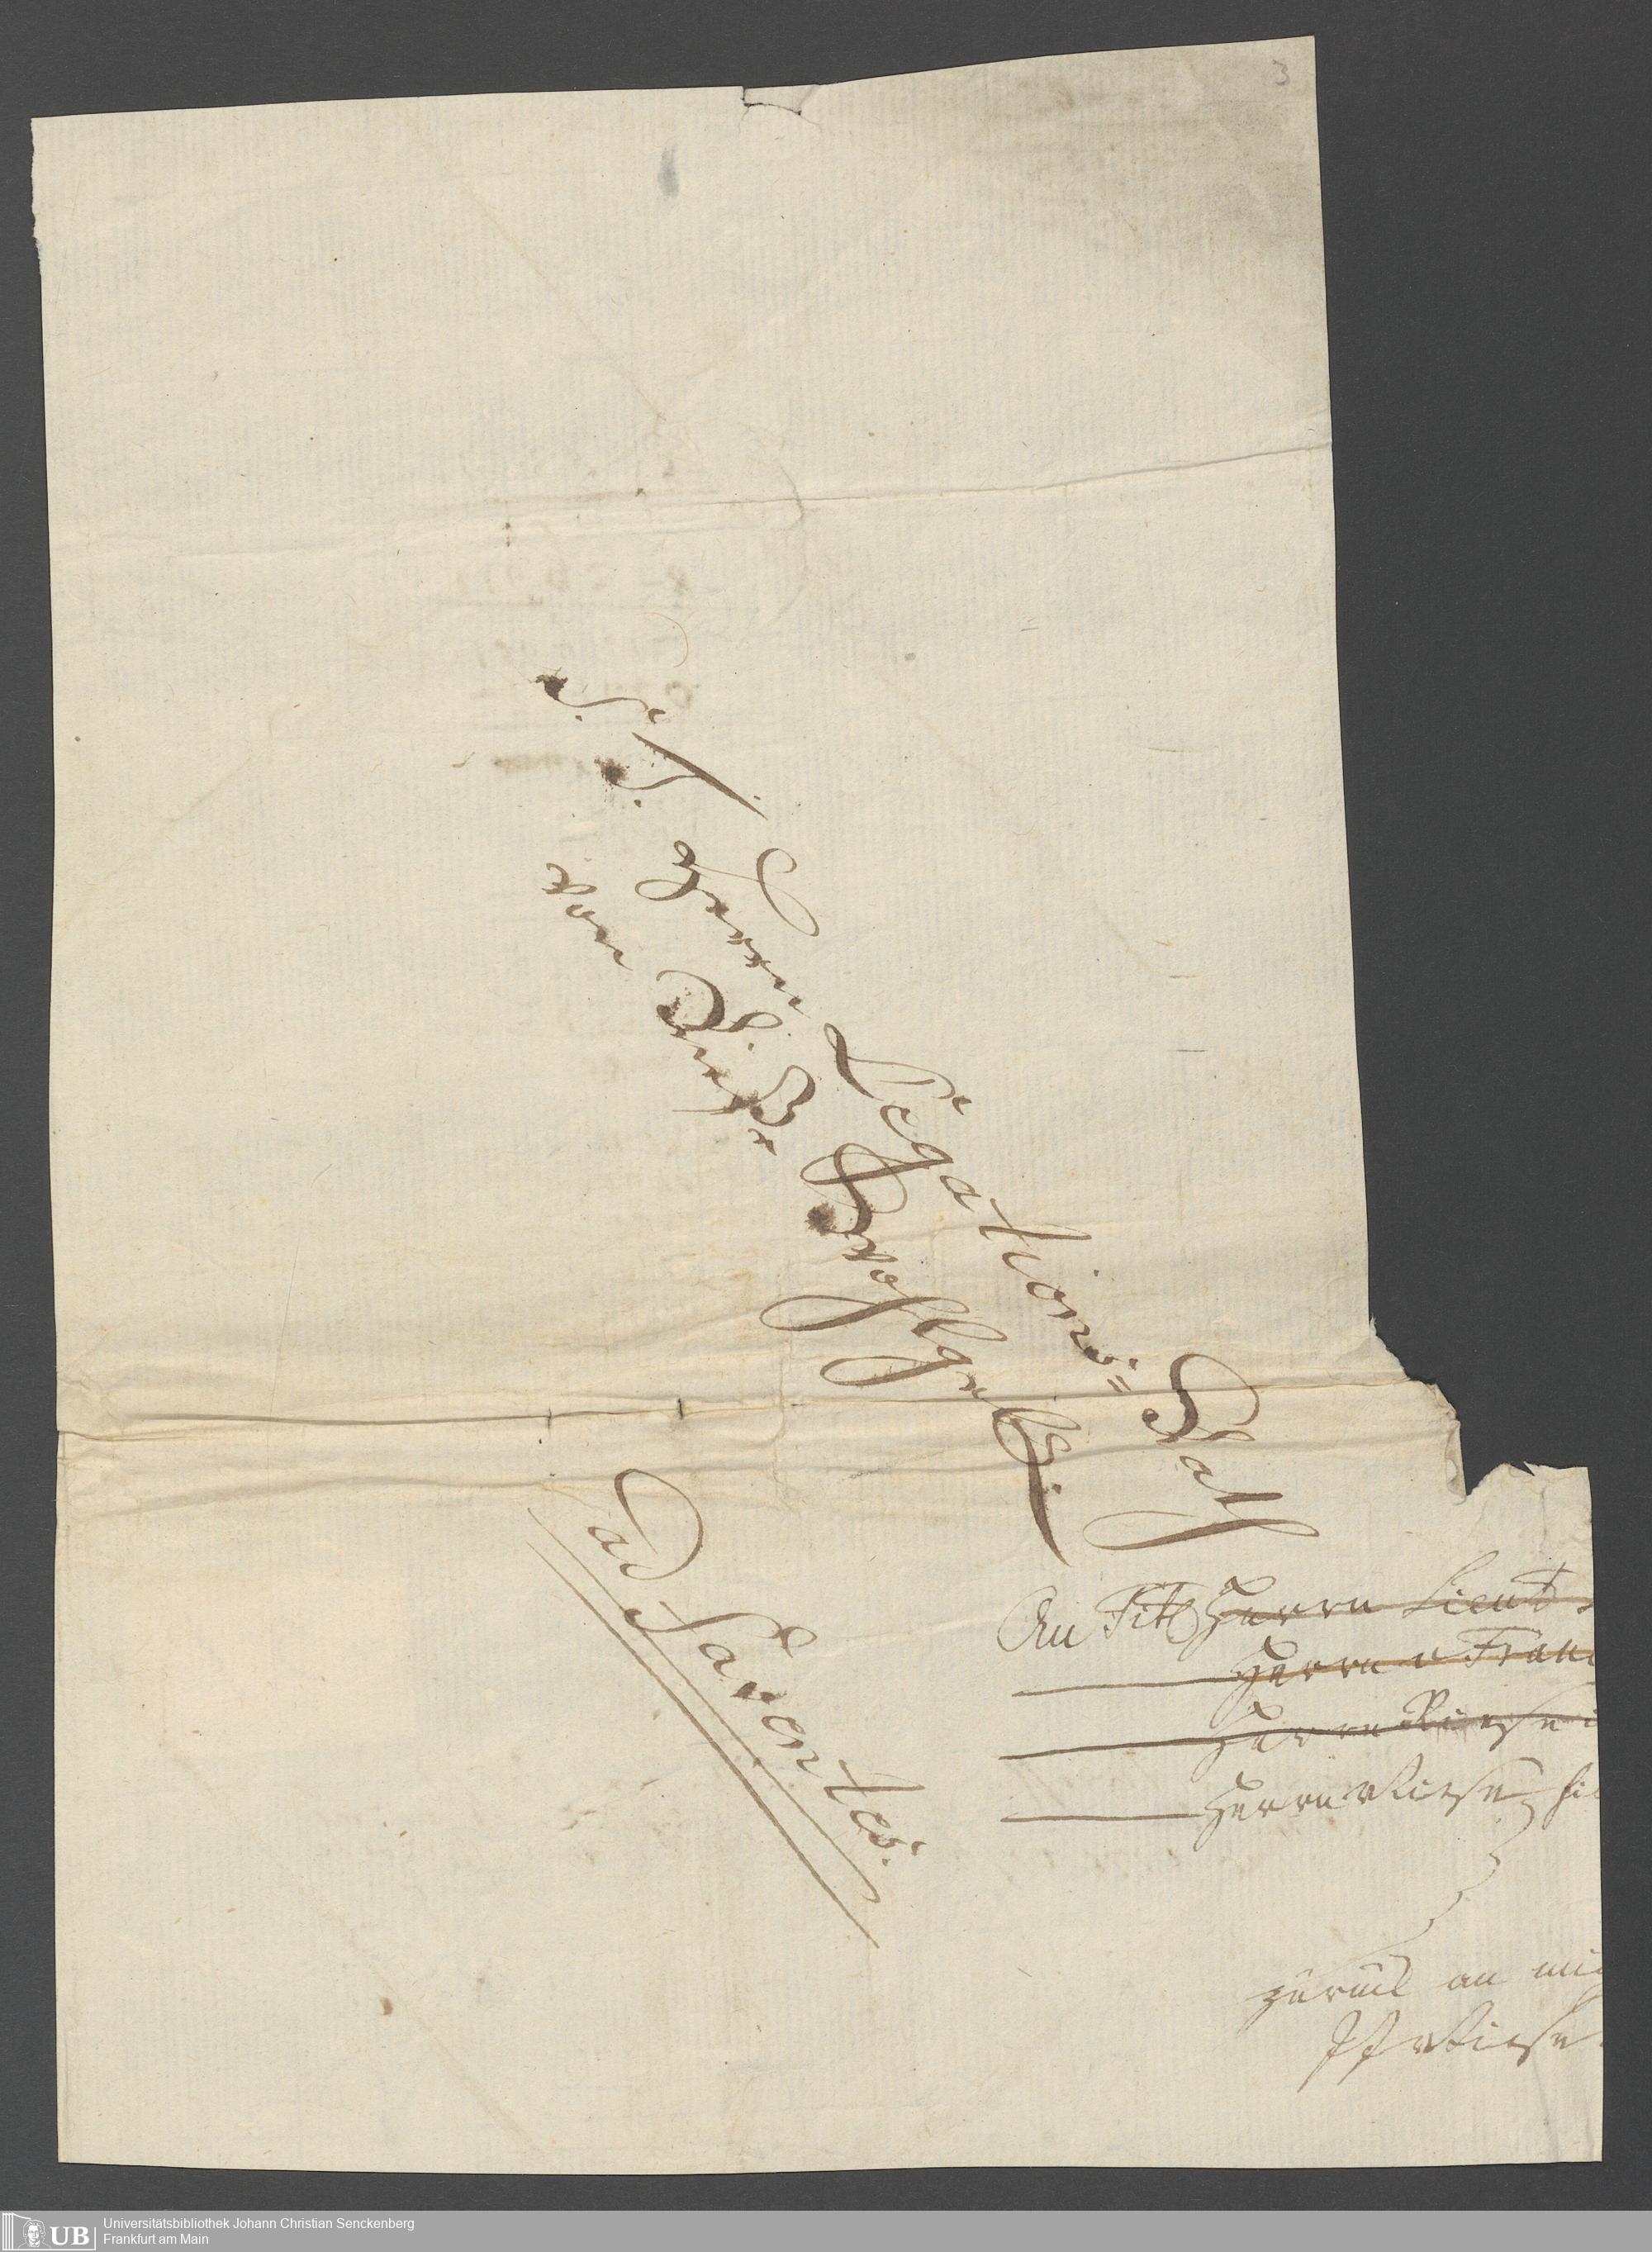 3
S. T.
Herrn Legations=Rath
von Riese Wohlgeb.
ad Parentes.
An Titl Herrn Lieut.
Herrn v Fran
Herrn Riese
Herrn Riese, hie
zurük an mi
Riese
Universitätsbibliothek Johann Christian Senckenberg
Frankfurt am Main
UB